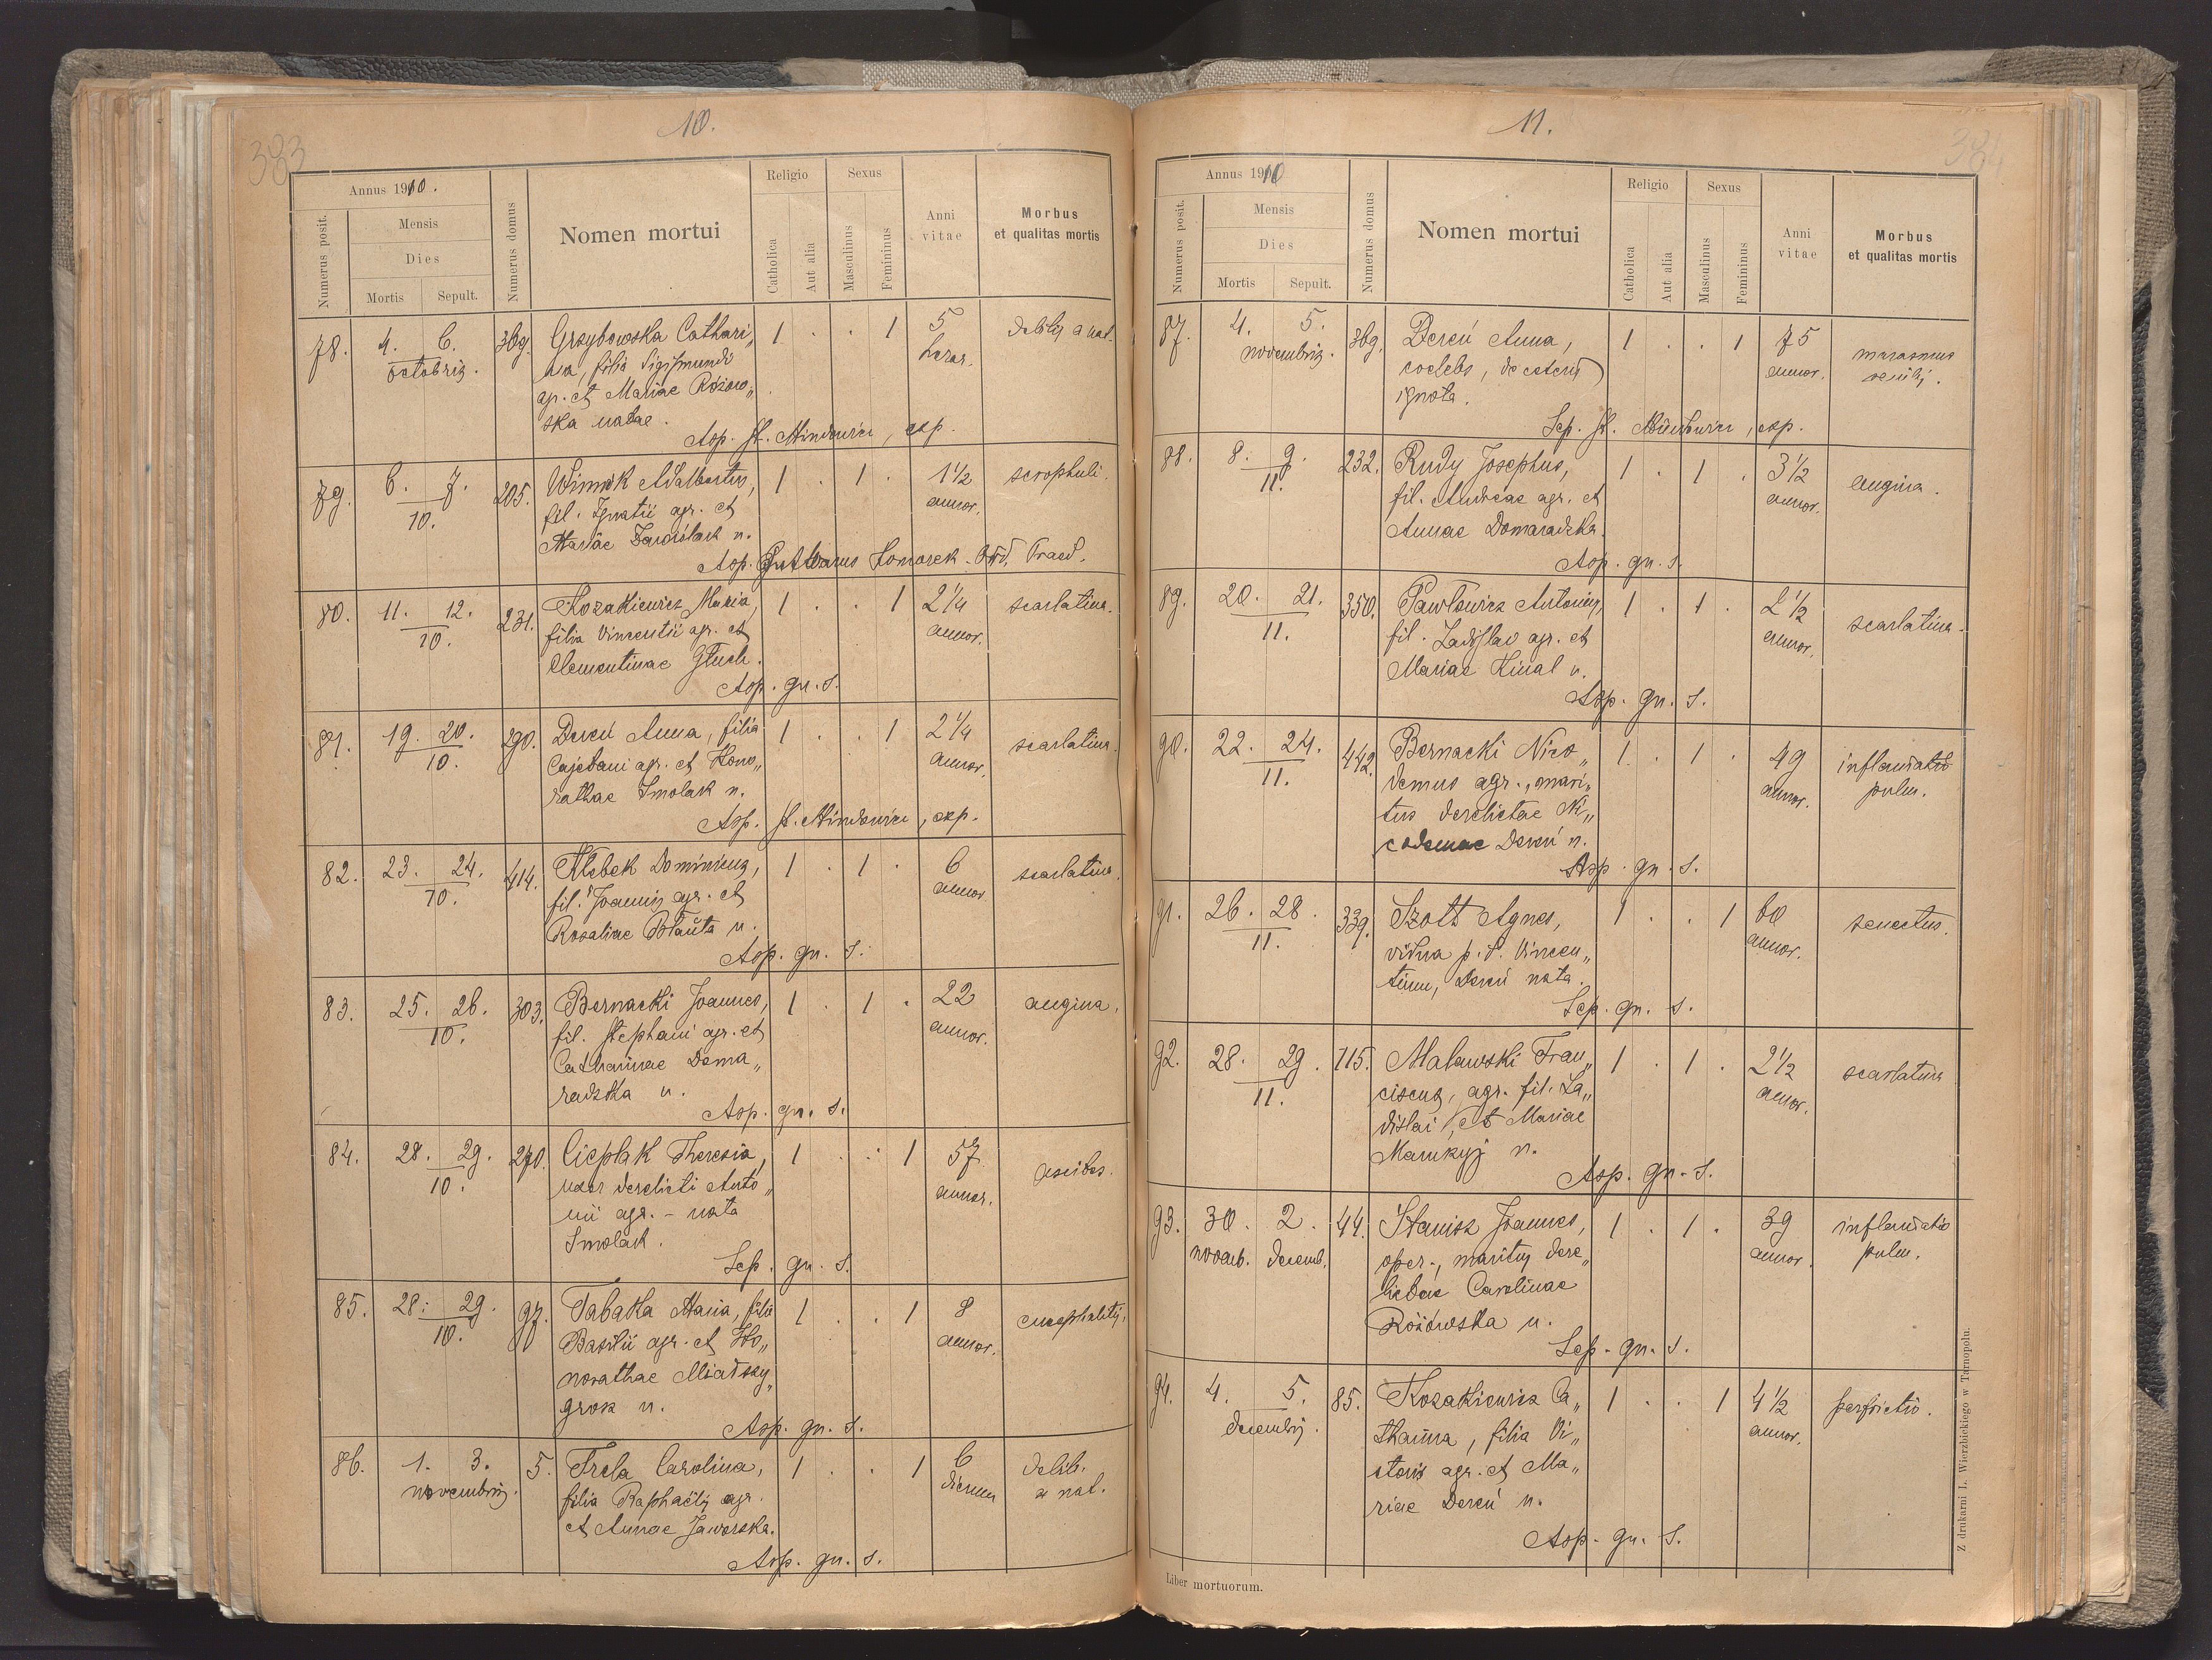 383
10.
Annus 1910.
Numerus posit.
Mensis
Dies
Mortis
Sepult.
Numerus domus
Nomen mortui
Religio
Catholica
Aut alia
Sexus
Masculinus
Femininus
Anni vitae
Morbus et qualitas mortis
78. 4. 6. 369. Grzybowska Cathari„ 1 . . 1 5 debilit. a nat.
octobris. na, filia Sigismundi horar.
agr. et Mariae Różow„
ska natae.
Asp. St. Mindowicz, exp.
79. 6. 7. 205. Winnik Adalbertus, 1 . 1 . 1½ scrophuli.
10. fil. Ignatii agr. et annor.
Mariae n.
Asp. Komorek Ord. Praed.
80. 11. 12. 231. Kozakiewicz Maria, 1 . . 1 2¼ scarlatina.
10. filia Vincentii agr. et annor.
Clementinae Głuch.
Asp. qu. s.
81. 19. 20. 290. Dereń Anna, filia 1 . . 1 2¼ scarlatina.
10. Cajetani agr. et Hono„ annor.
rathae Smolak n.
Asp. St. Mindowicz, exp.
82. 23. 24. 414. Klebek Dominicus, 1 . 1 . 6 scarlatina.
10. fil. Joannis agr. et annor.
Rosaliae n.
Asp. qu. s.
83. 25. 26. 303. Bernacki Joannes, 1 . 1 . 22 angina.
10. fil. Stephani agr. et annor.
Catharinae Doma„
radzka n.
Asp. qu. s.
84. 28. 29. 270. Cieplak Theresia, 1 . . 1 57 ascites.
10. uxor derelicti Anto„ annor.
nii agr. – nata
Smolak.
Sep. qu. s.
85. 28. 29. 97. Tabaka Maria, filia 1 . . 1 8 encephalitis.
10. Basilii agr. et Ho„ annor.
norathae
n.
Asp. qu. s.
86. 1. 3. 5. Trela Carolina, 1 . . 1 6 debil.
novembris. filia Raphaëlis agr. dierum a nat.
et Annae Jaworska.
Asp. qu. s.
384
11.
Annus 1910
Numerus posit.
Mensis
Dies
Mortis
Sepult.
Numerus domus
Nomen mortui
Religio
Catholica
Aut alia
Sexus
Masculinus
Femininus
Anni vitae
Morbus et qualitas mortis
87. 4. 5. 369. Dereń Anna, 1 . . 1 75 marasmus
novembris. coelebs, de ceteris annor. senilis.
ignota.
Sep. St. Mindowicz, exp.
88. 8. 9. 232. Rudy Josephus, 1 . 1 . 3½ angina.
11. fil. Andreae agr. et annor.
Annae Domaradzka.
Asp. qu. s.
89. 20. 21. 350. Pawłowicz Antonius, 1 . 1 . 2½ scarlatina.
11. fil. Ladislav agr. et annor.
Mariae Kinal n.
Asp. qu. s.
90. 22. 24. 442. Bernacki Nico„ 1 . 1 . 49 inflamatio
11. demus agr., mari„ annor. pulm.
tus derelictae Ni„
codemae Dereń n.
Asp. qu. s.
91. 26. 28. 339. Szott Agnes, 1 . . 1 60 senectus.
11. vidua p. d. Vincen„ annor.
tium, Dereń nata.
Sep. qu. s.
92. 28. 29. 115. Malawski Fran„ 1 . 1 . 2½ scarlatina
11. ciscus, agr. fil. La„ annor.
dislai, et Mariae
n.
Asp. qu. s.
93. 30. 2. 44. Stanisz Joannes, 1 . 1 . 39 inflamatio
novemb. decemb. oper., maritus dere„ annor. pulm.
lictae Carolinae
Różowska n.
Sep. qu. s.
94. 4. 5. 85. Kozakiewicz Ca„ 1 . . 1 4½ perfrictio.
decembris. tharina, filia Vi„ annor.
ctoris agr. et Ma„
riae Dereń n.
Asp. qu. s.
Liber mortuorum.
Z drukarni L. Wierzbickiego w Tarnopolu.